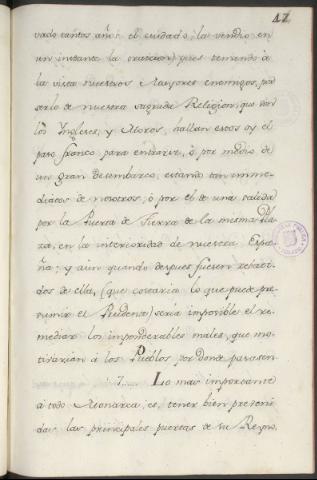 17
vado tantos años el cuidado, la vendio en
un instante la oracion) pues teniendo à
la vista nuestros Mayores enemigos, por
serlo de nuestra sagrada Religion, que son
los Ingleses, y Moros, hallan estos oy el
paso franco para embarir, ò por medio de
un gran desembarco, estando tan imme-
diatos de nosotros, ò por el de una salida
por la Puerta de Tierra de la misma Pla
za, en la interioridad de nuestra Espa
ña: y aun quando despues fuesen rebati-
dos de ella, (que costaria lo que puede pre
sumir el Prudente) seria imposible el re-
mediar los imponderables males, que mo-
tivarian à los Pueblos por donde pasasen
7..... Lo mas importante
à todo Monarca, es, tener bien preveni
das las principales puertas de su Reyno,